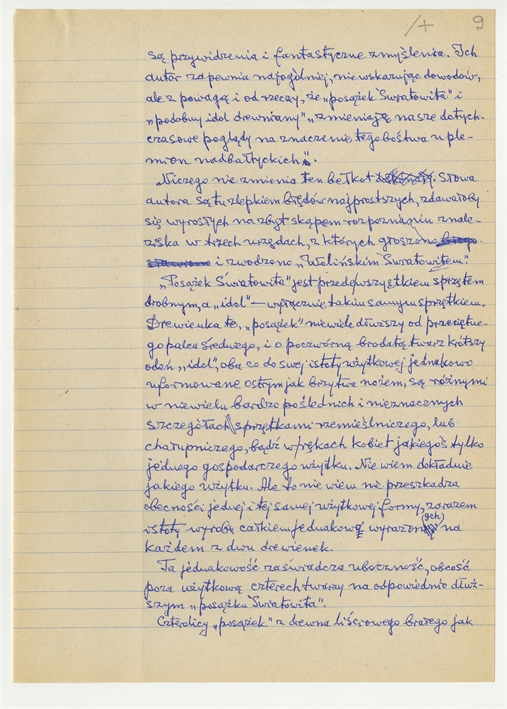 /+ 9
są przywidzenia i fantastyczne zmyślenia. Ich
autor zapewnia najogólniej, nie wskazując dowodów,
ale z powagą i od rzeczy, że „posążek Światowita” i
„podobny idol drewniany” „zmieniają nasze dotych-
czasowe poglądy na znaczenie tego bóstwa u ple-
mion nadbałtyckich”.
Niczego nie zmienia ten bełkot. Słowa
autora są tu zlepkiem błędów najprostszych, zdawałoby
się wyrosłych na zbyt skąpem rozpoznaniu znale-
ziska w trzech urzędach, z których głoszono
i zwodzono „Wolińskim Światowitem”.
„Posążek Światowita” jest przede wszystkiem sprzętem
drobnym, a „idol” — wyłącznie takim samym sprzętkiem.
Drewienka te, „posążek” niewiele dłuższy od przeciętne-
go palca średniego, i o poczwórną brodatą twarz krótszy
odeń „idol”, oba co do swej istoty użytkowej jednakowo
uformowane ostrym jak brzytwa nożem, są różnymi
w niewielu bardzo poślednich i nieznacznych
szczegółach sprzętkami rzemieślniczego, lub
chałupniczego, bądź w rękach kobiet jakiegoś tylko
jednego gospodarczego użytku. Nie wiem dokładnie
jakiego użytku. Ale to nie wiem nie przeszkadza
obecności jednej i tej samej użytkowej formy, zarazem
istoty wyrobu całkiem jednakową wyrażonych na
każdem z dwu drewienek.
Ta jednakowość zaświadcza uboczność, obcość
poza użytkową czterech twarzy na odpowiednio dłuż-
szym „posążku Światowita”.
Czterolicy „posążek” z drewna liściowego białego jak